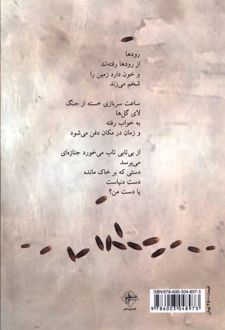 رودها
از رودها رفته‌اند
و خون دارد زمین را
شخم می‌زند
ساعت سربازی خسته از جنگ
لای گل‌ها
به خواب رفته
و زمان در مکان دفن می‌شود
از بی‌تابی تاب می‌خورد جنازه‌ای
می‌پرسد
دستی که بر خاک مانده
دست دنیاست
یا دست من؟
ISBN:978-600-304-897-3
9786003048973